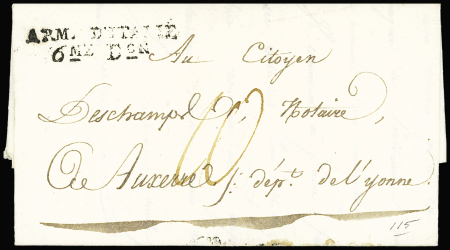 ARM. D'ITALIE
6ME DON
Au Citoyen
Deschamps, Notaire,
A Auxerre, dépt. de l'yonne.
115